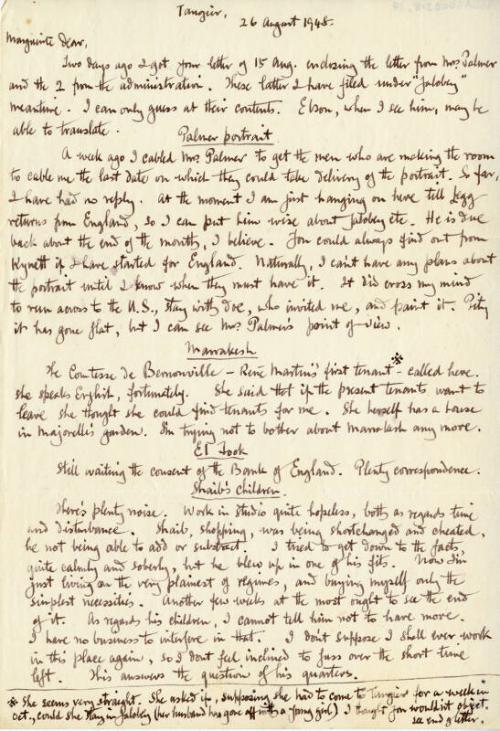 Tangier,
26 August 1948.
Marguerite Dear,
Two days ago I got your letter of 15 Aug. enclosing the letter from Mrs Palmer
and the 2 from the administration. These latter I have filed under "Jalobey"
meantime. I can only guess at their contents. Elson, when I see him, may be
able to translate.
Palmer portrait
A week ago I cabled Mrs. Palmer to get the men who are making the room
to cable me the last date on which they could take delivery of the portrait. So far,
I have had no reply. At the moment I am just hanging on here till Legg
returns from England, so I can put him wise about Jalobey etc. He is due
back about the end of the month, I believe. You could always find out from
Kynett if I have started for England. Naturally, I can't have any plans about
the portrait until I know when they must have it. It did cross my mind
to run across to the U.S., stay with Doe, who invited me, and paint it. Pity
it has gone flat, but I can see Mrs Palmer's point of view.
Marrakesh
The Comtesse de Bernonville - René Martin's first tenant※ - called here.
She speaks English, fortunately. She said that if the present tenants want to
leave she thought she could find tenants for me. She herself has a house
in Majorelle's garden. I'm trying not to bother about Marrakesh any more.
El Fook
Still waiting the consent of the Bank of England. Plenty correspondence.
Shaib's children.
There's plenty noise. Work in studio quite hopeless, both as regards time
and disturbance. Shaib, shopping, was being shortchanged and cheated,
he not being able to add or substract. I tried to get down to the facts,
quite calmly and soberly, but he blew up in one of his fits. Now I'm
just living on the very plainest of régimes, and buying myself only the
simplest necessities. Another few weeks at the most ought to see the end
of it. As regards his children, I cannot tell him not to have more.
I have no business to interfere in that. I don't suppose I shall ever work
in this place again, so I don't feel inclined to fuss over the short time
left. This answers the question of his quarters.
※ She seems very straight. She asked if, supposing she had to come to Tangier for a week in
Oct., could she stay in Jalobey (her husband has gone off with a young girl) I thought you wouldn't object.
see end of letter.